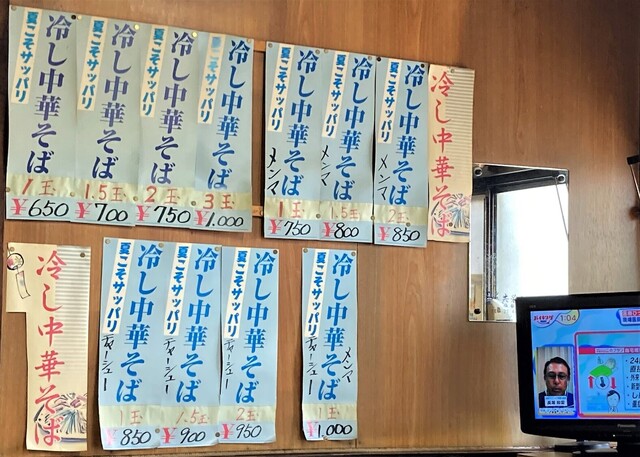 冷し中華そば
夏こそサッパリ
1玉
¥650
冷し中華そば
夏こそサッパリ
1.5玉
¥700
冷し中華そば
夏こそサッパリ
2玉
¥750
冷し中華そば
夏こそサッパリ
3玉
¥1,000
冷し中華そば
夏こそサッパリ
メンマ
1玉
¥750
冷し中華そば
夏こそサッパリ
メンマ
1.5玉
¥800
冷し中華そば
夏こそサッパリ
メンマ
2玉
¥850
冷し中華そば
冷し中華そば
冷し中華そば
夏こそサッパリ
チャーシュー
1玉
¥850
冷し中華そば
夏こそサッパリ
チャーシュー
1.5玉
¥900
冷し中華そば
夏こそサッパリ
チャーシュー
2玉
¥950
冷し中華そば
夏こそサッパリ
メンマ
チャーシュー
1玉
¥1,000
バイキング
1:04
Panasonic